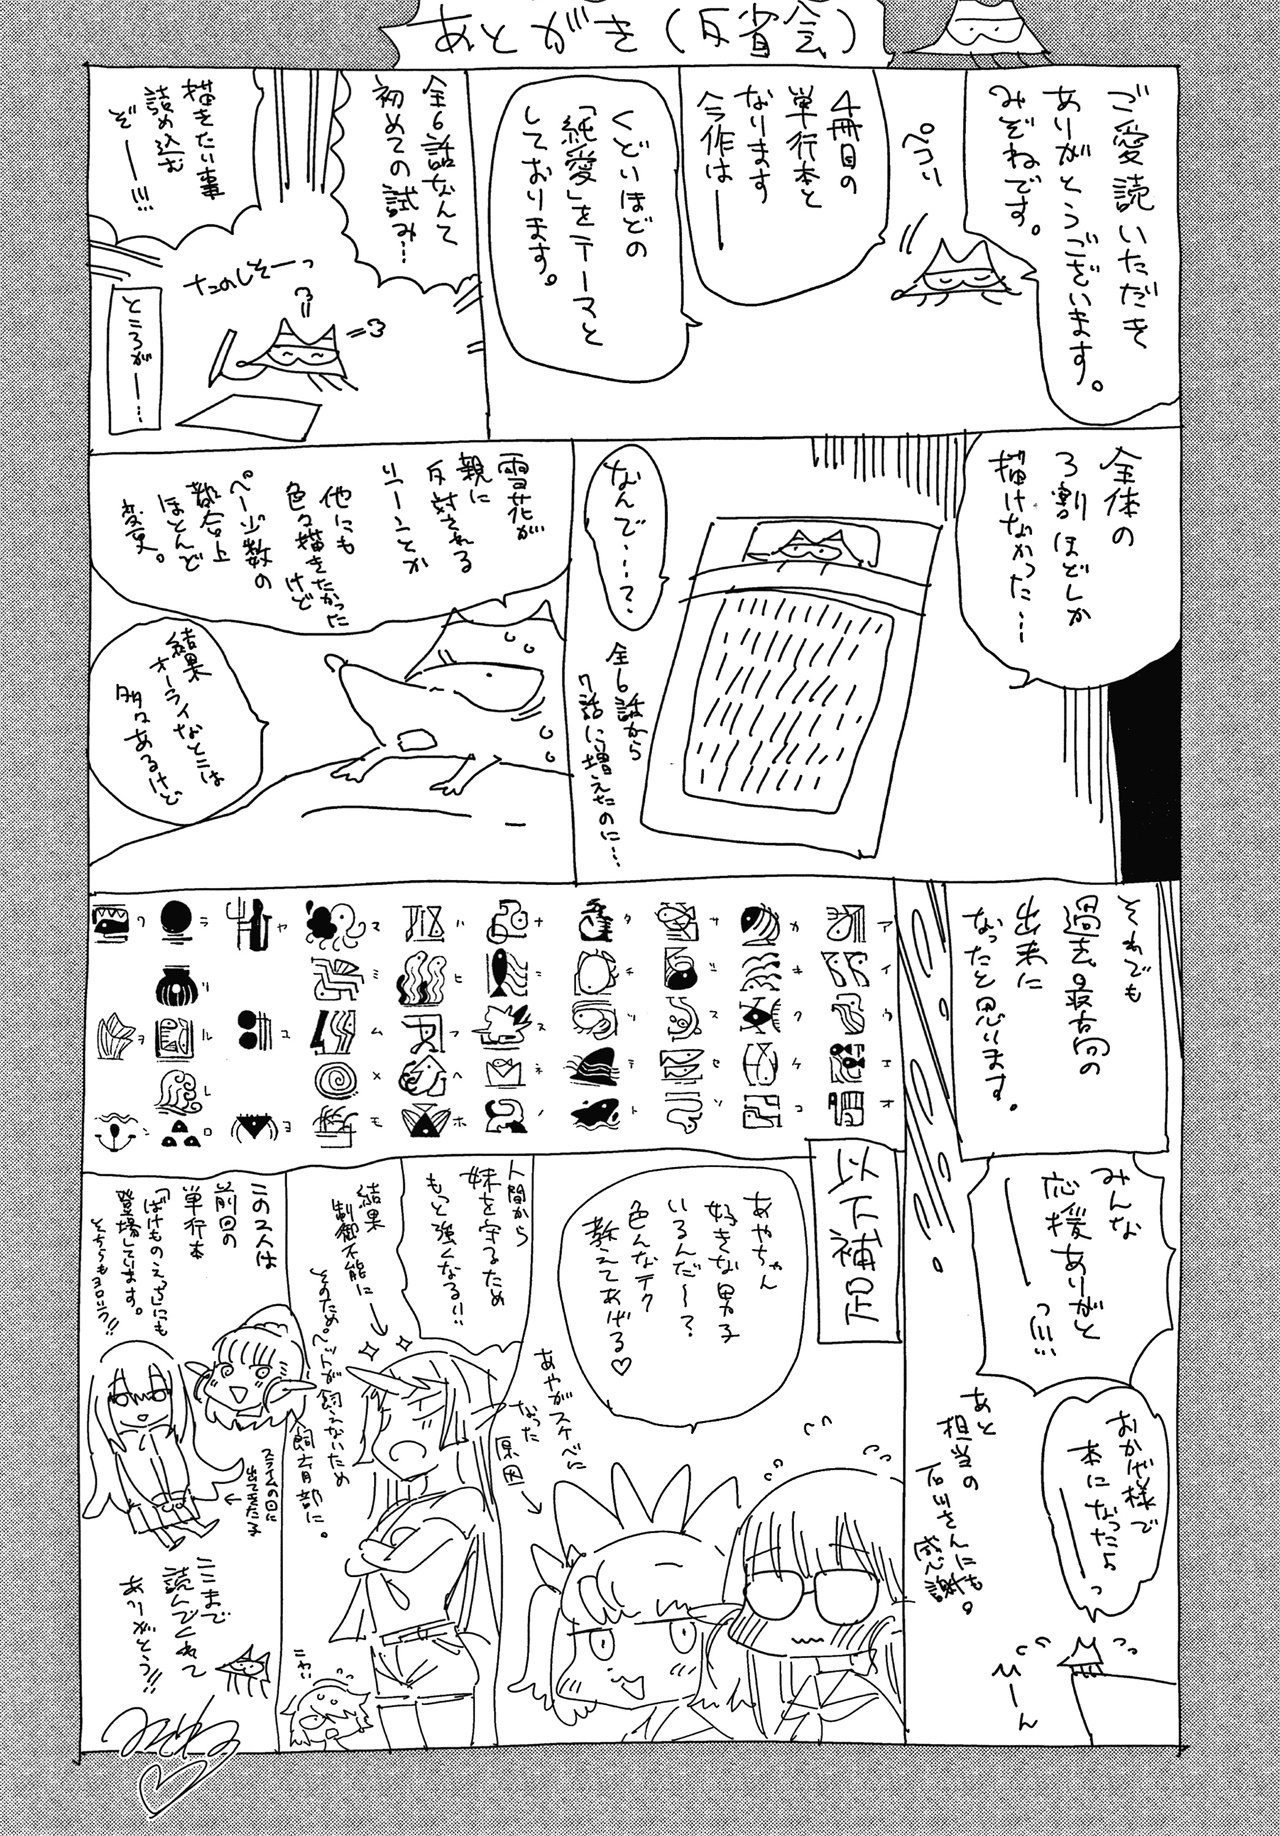 あとがき(反省会)
ご愛読いただき
ありがとうございます。
みぞねです。
ペコッ
4冊目の
単行本と
なります
今作は──
くどいほどの
「純愛」をテーマと
しております。
全6話なんて
初めての試み…
描きたい事
詰め込む
ぞー!!!
たのしそーっ
ところがー…
全体の
3割ほどしか
描けなかった…
なんで……て?
全6話から
7話に増えたのに…
雪花が
親に
反対される
シーンとか
他にも
色々描きたかった
けど
ページ数の
都合上
ほとんど
変更。
結果
オーライなとこは
多々あるけど
それでも
過去最高の
出来に
なったと思います。
みんな
応援ありがと
──っ!!!
おかげ様で
本になったよっ
──
あと
担当の
石川さんにも
感謝。
ひーん
ア イ ウ エ オ
カ キ ク ケ コ
サ シ ス セ ソ
タ チ ツ テ ト
ナ ニ ヌ ネ ノ
ハ ヒ フ ヘ ホ
マ ミ ム メ モ
ヤ ユ ヨ
ラ リ ル レ ロ
ワ ヲ ン
以下補足
あやちゃん
好きな男子
いるんだ~?
色んなテク
教えてあげる♡
あやがスケベに
なった
原因→
人間から
妹を守るため
もっと強くなる!!
結果
制御不能に→
そのためペットが飼えないため
飼育部に。
この2人は
前回の
単行本
「ばけものえっち」にも
登場しています。
そちらもヨロシク!!
スライムの回に
出てきた子
ここまで
読んでくれて
ありがとう!!
みぞね♡